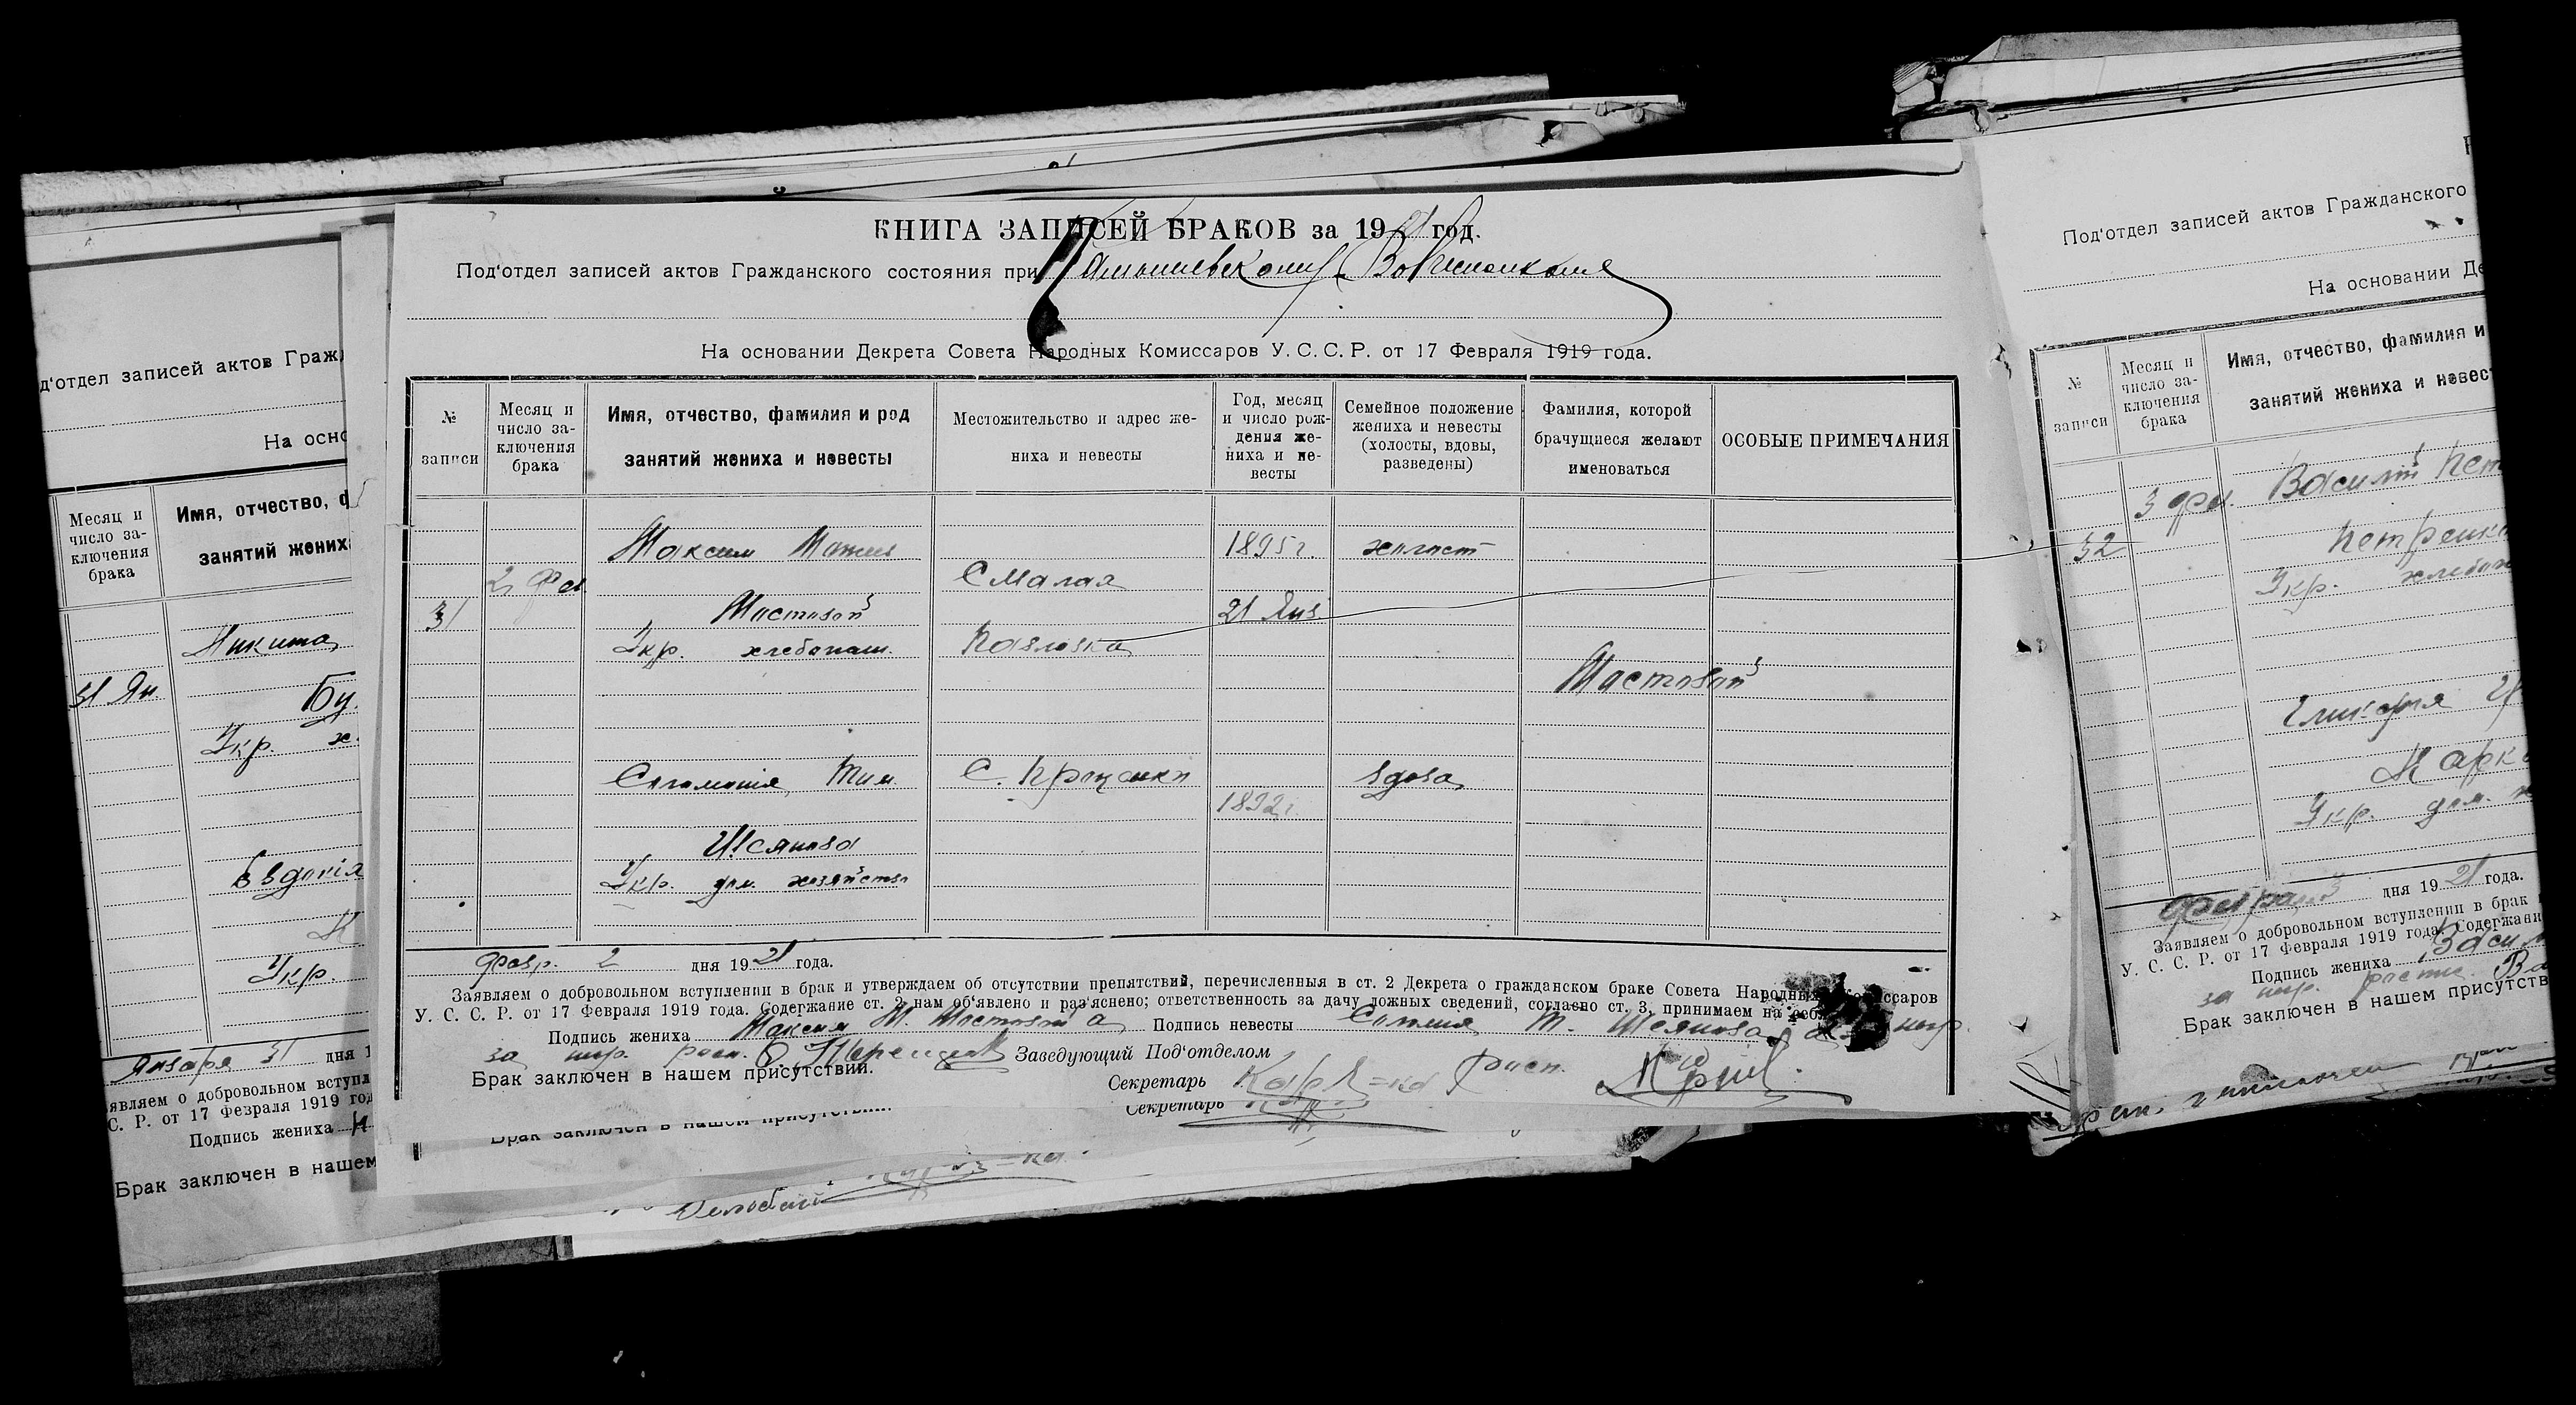 КНИГА ЗАПИСЕЙ БРАКОВ за 1921 год.
Под'отдел записей актов Гражданского состояния при
На основании Декрета Совета Народных Комиссаров У.С.С.Р. от 17 Февраля 1919 года.
№ записи
Месяц и число заключения брака
Имя, отчество, фамилия и род занятий жениха и невесты
Местожительство и адрес жениха и невесты
Год, месяц и число рождения жениха и невесты
Семейное положение жениха и невесты (холосты, вдовы, разведены)
Фамилия, которой брачущиеся желают именоваться
ОСОБЫЕ ПРИМЕЧАНИЯ
Максим 1895 г. холост
2 Фев С Малая
31 Мостовой 21 Янв.
Укр. хлебопаш. Павловка
Мостовой
Соломонія Тим. С. вдова
1892 г.
Укр. дом. хозяйство
Февр. 2 дня 1921 года.
Заявляем о добровольном вступлении в брак и утверждаем об отсутствии препятствий, перечисленныя в ст. 2 Декрета о гражданском браке Совета Народных Комиссаров
У. С. С. Р. от 17 Февраля 1919 года. Содержание ст. 2 нам об'явлено и раз'яснено; ответственность за дачу ложных сведений, согласно ст. 3, принимаем на себя
Подпись жениха Максим М. Мостовой а Подпись невесты
за негр. расп. Заведующий Под'отделом
Брак заключен в нашем присутствии.
Секретарь
Секретарь
Брак заключен в нашем присутствии.
д'отдел записей актов Гражд
На осно
Месяц и число заключения брака
Имя, отчество, ф
занятий жениха
Никита
31 Ян.
Бу
Укр. х
Евдокія
Укр.
Января 31 дня 1
являем о добровольном вступл
С. Р. от 17 Февраля 1919 год
Подпись жениха
Брак заключен в нашем
Под'отдел записей актов Гражданского
На основании Де
№ записи
Месяц и число заключения брака
Имя, отчество, фамилия и
занятий жениха и невест
3 фев. Василий Пет
32 Петренко
Укр. хлебопаш
Гликерия
Марк
Укр. дом. х
Февраля 3 дня 1921 года.
Заявляем о добровольном вступлении в брак
У. С. С. Р. от 17 Февраля 1919 года. Содержани
Подпись жениха Васил
за негр. распис.
Брак заключен в нашем присутств